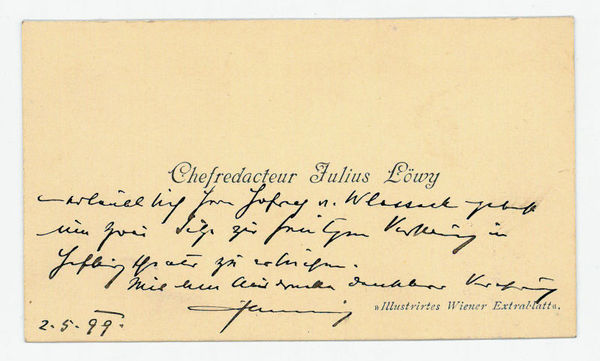 Chefredacteur Julius Löwy
– erlaubt sich Herrn Hofrath v. Wlassack
um zwei Sitze zur heutigen Vorstellung im
Hofburgtheater zu ersuchen.
Mit dem Ausdrucke dankbarer Verehrung
»Illustrirtes Wiener Extrablatt«.
2.5.99.